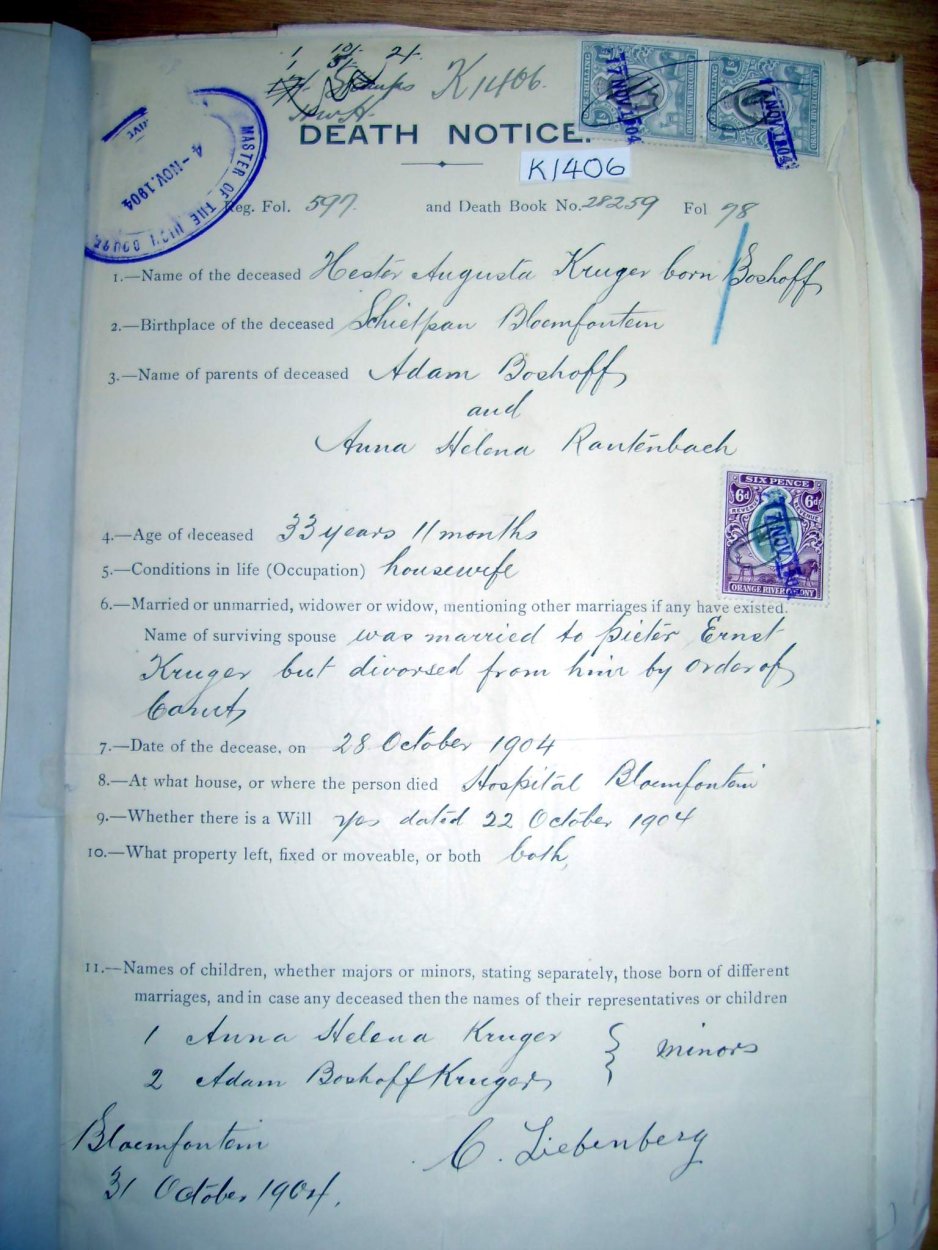 1 10/- 2/-
K1406.
DEATH NOTICE.
K1406
MASTER OF THE HIGH COURT
4 - NOV. 1904
SHILLING
1S
ORANGE RIVER COLONY
17 NOV 1904
17 NOV 1904
Reg. Fol. 597 and Death Book No. 28259 Fol 98
1.—Name of the deceased Hester Augusta Kruger born Boshoff
2.—Birthplace of the deceased Schietpan Bloemfontein
3.—Name of parents of deceased Adam Boshoff
and
Anna Helena Rautenbach
SIX PENCE
6d 6d
REVENUE REVENUE
17 NOV 1904
ORANGE RIVER COLONY
4.—Age of deceased 33 years 11 months
5.—Conditions in life (Occupation) housewife
6.—Married or unmarried, widower or widow, mentioning other marriages if any have existed.
Name of surviving spouse was married to Pieter Ernst
Kruger but divorsed from him by order of
Court
7.—Date of the decease, on 28 October 1904
8.—At what house, or where the person died Hospital Bloemfontein
9.—Whether there is a Will yes dated 22 October 1904
10.—What property left, fixed or moveable, or both both
11.—Names of children, whether majors or minors, stating separately, those born of different
marriages, and in case any deceased then the names of their representatives or children
1 Anna Helena Kruger } minors
2 Adam Boshoff Kruger
Bloemfontein C. Liebenberg
31 October 1904.